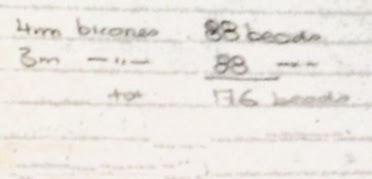 4mm bicones 88 beads
3m -"- 88 -"-
tot 176 beads